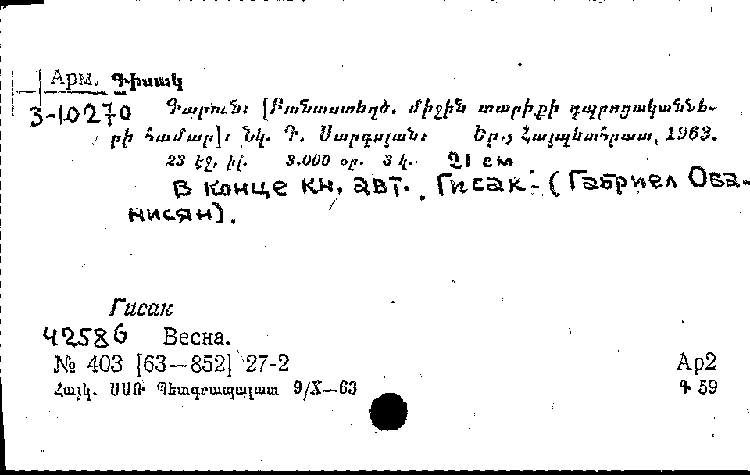 Арм. Գիսակ
3-10270 Գարուն։ [Բանաստեղծ. միջին տարիքի դպրոցականնե-
րի համար]։ Նկ. Գ. Սարգսյան։ Եր., Հայպետհրատ, 1963.
23 էջ, իլ. 3.000 օր. 3 կ. 21 см
В конце кн. авт. Гисак (Габриел Ова-
нисян).
Гисак
42586 Весна.
№ 403 [63—852] 27-2 Ар2
Հայկ. ՍՍՌ Պետգրապալատ 9/X—63 Գ 59